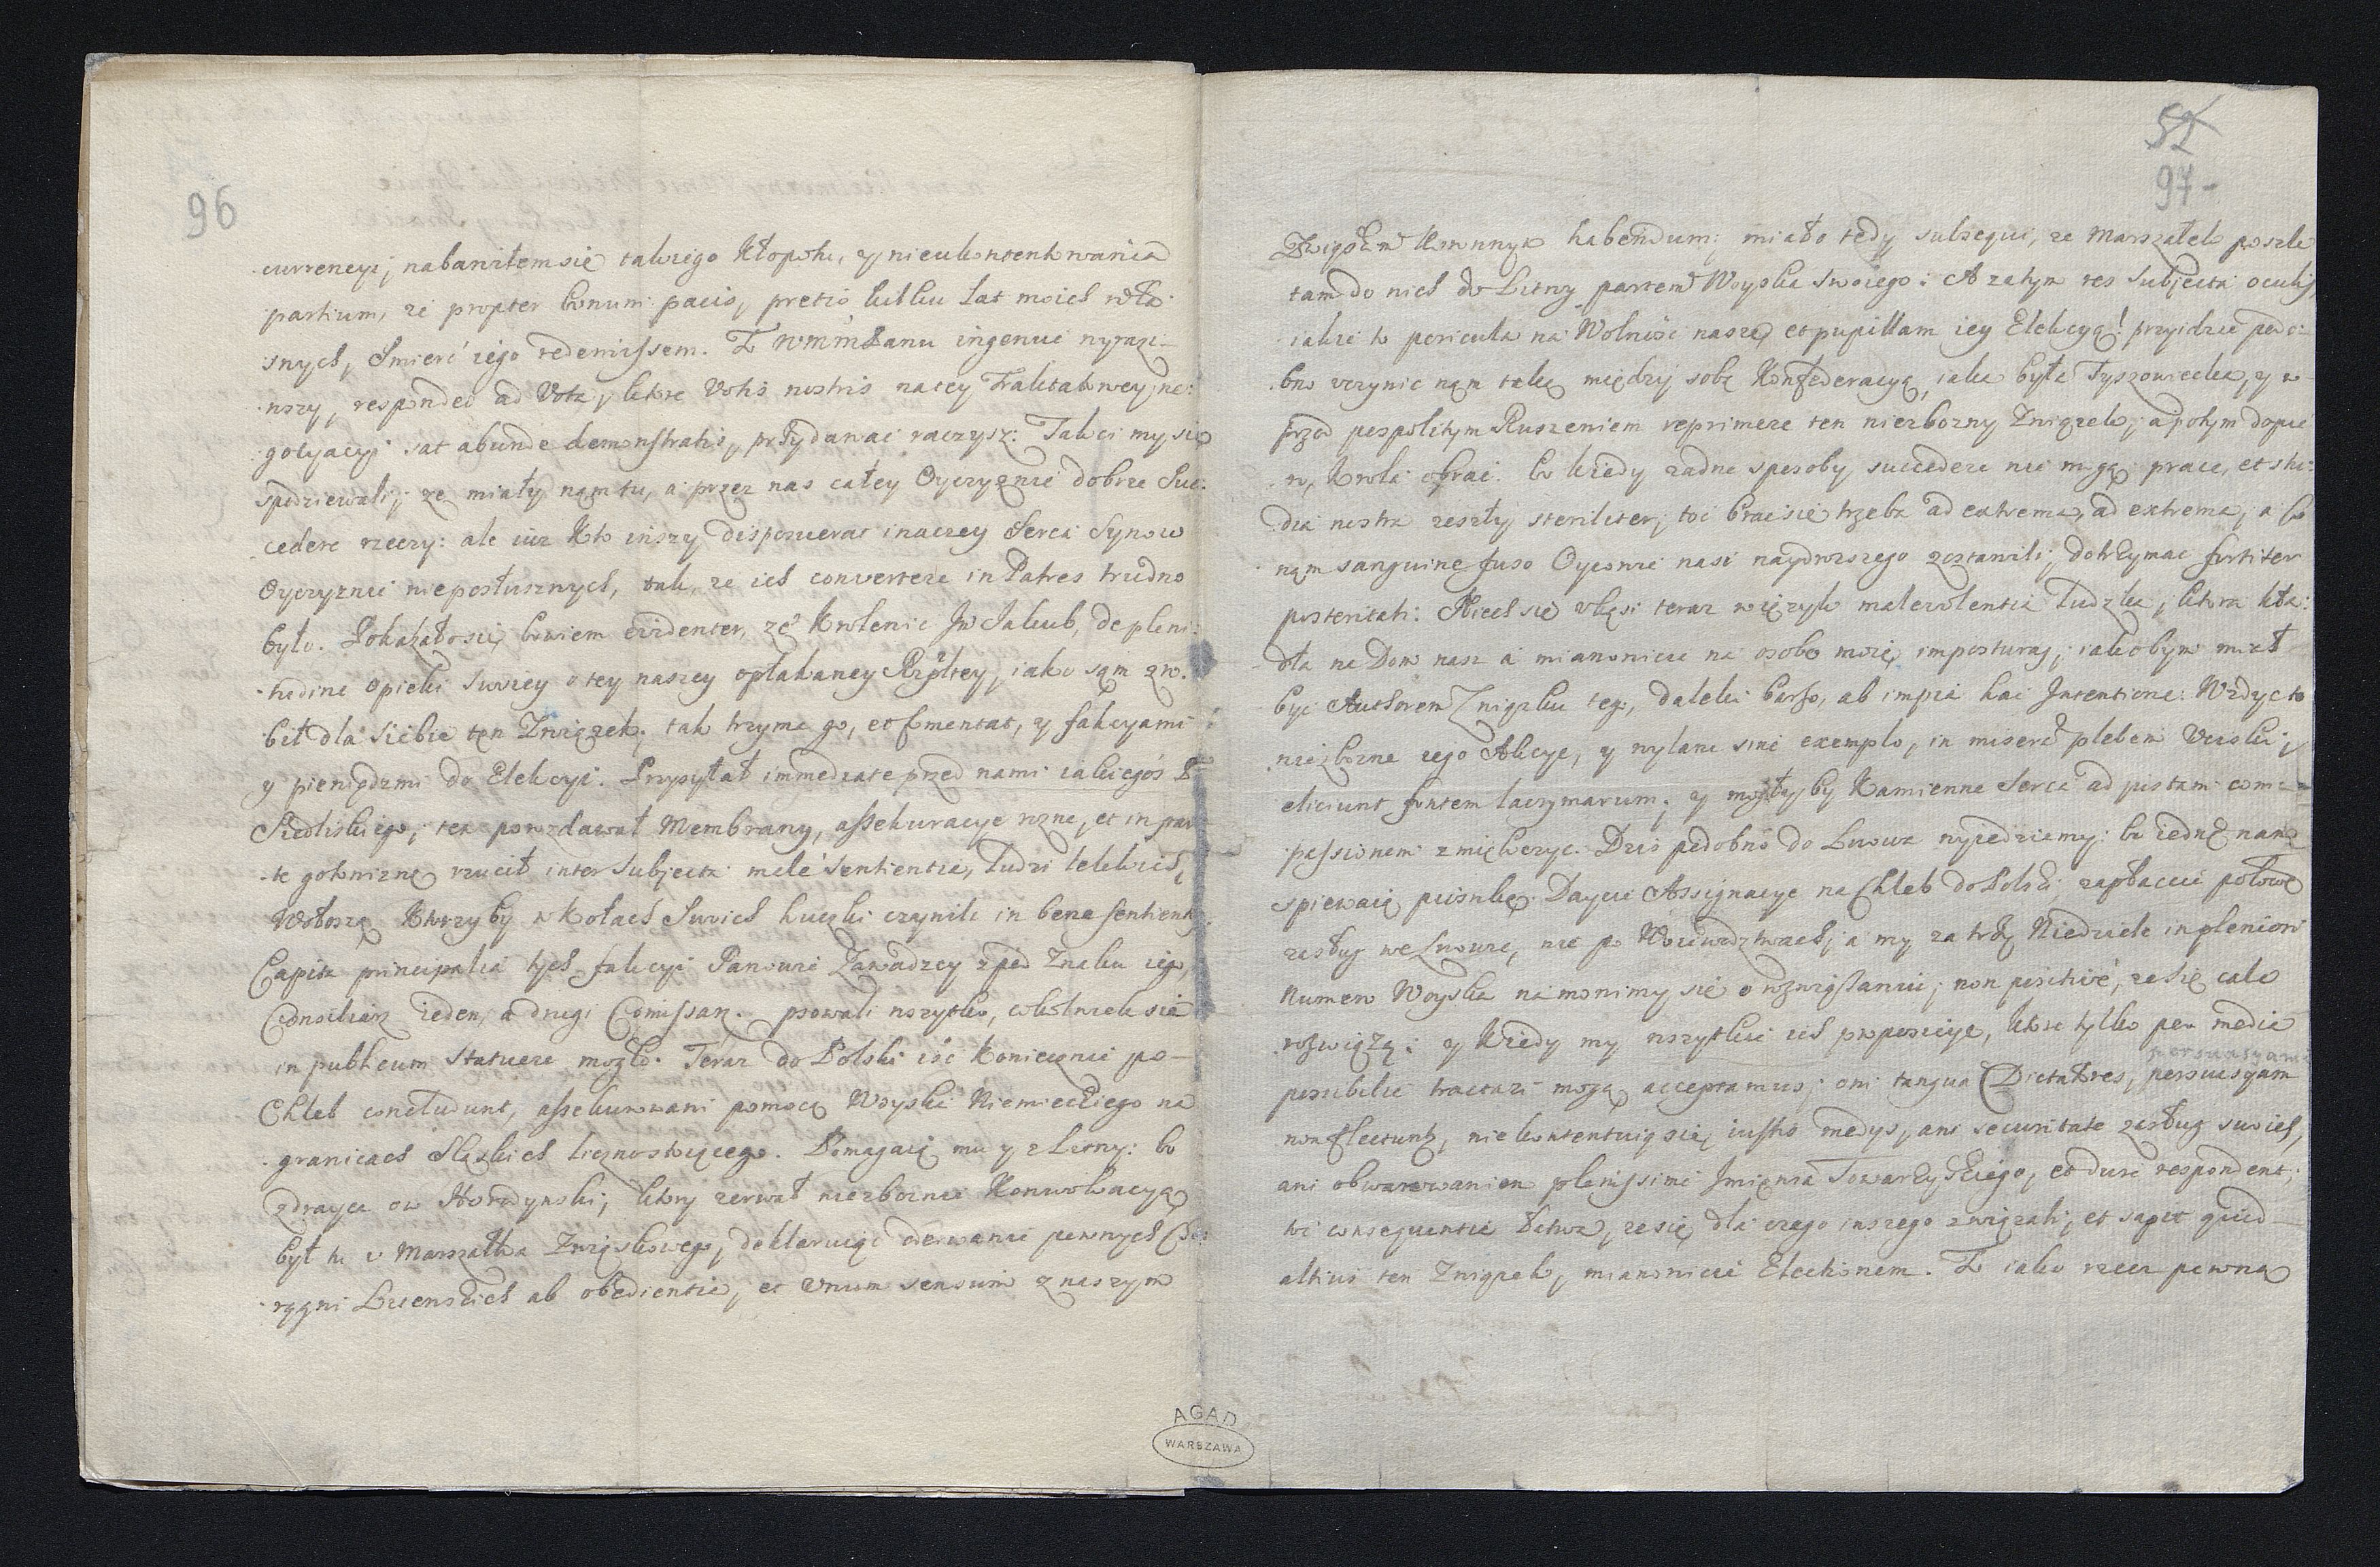 96
currencyi, nabawiłem się takiego Kłopotu, y nieukontentowania
partium, że propter bonum pacis, pretio kilku Lat moich wła-
snych, Smierć iego redemissem. Z WMMPanu ingenue wyrazi-
wszy, respondeo ad Vota, ktore Votis nostris na tey Traktatowey ne-
gocyacyi sat abunde demonstratis, przydawać raczysz. Takci my się
spodziewali, że miały nąm tu, a przez nas całey Oyczyznie dobrze Suc-
cedere rzeczy: ale iuż Kto inszy disposuerat inaczey Serca Synow
Oyczyznie nieposłusznych, tak, że ich convertere in Patres trudno
było. Pokazało się bowiem evidenter, że Krolewic Jm Jakub, de pleni-
tudine opieki swoiey o tey naszey opłakaney Rzpltey, iako sąm zro-
bił dla siebie ten Związek, tak trzyma go, et fomentat, y fakcyami
y pieniędzmi do Elekcyi. Przysyłał immediate przed nami iakiegoś P.
Siedliskiego, ten porozdawał Membrany, assekuracye rozne, et in par-
te gotowiznę rzucił inter Subjecta male sentientia, ludzi lekkich,
Wołoszę Ktorzy by w Kołach Swoich huczki czynili in bene sentientes.
Capita principalia tych fakcyi Panowie Zawadzcy z pod Znaku iego,
Consiliarz ieden, a drugi Comissarz. psowali wszytko, cokolwiek się
in publicum statuere mogło. Teraz do Polski iść Koniecznie po
Chleb concludunt, assekurowani pomocą Woyska Niemieckiego na
granicach Sląskich licznostoiącego. Pomagaią mu y z Litwy: bo
zdrayca ow Horodynski, ktory zerwał niezboznie Konwokacyą
był tu u Marszałka Związkowego, deklaruiąc oderwanie pewnych Cho-
rągwi Litewskich ab obedientia, et unum sensum z naszym
52
97-
Związkiem Kownnyw habendum; miało tedy subsequi, że Marszałek poszle
tam do nich do Litwy partem Woyska swoiego: A zatym res subjecta oculis,
iakie to pericula na Wolność naszę et pupillam iey Elekcyą! przyidzie podo-
bno uczynic nąm taką między sobą Konfederacyą, iaka była Tyszowiecka, y w
przod pospolitym Ruszeniem reprimere ten niezbozny Związek, a potym dopie-
ro, Krola obrać. bo kiedy zadne sposoby succedere nie mogą, prace, et stu-
dia nostra zeszły steriliter, toć brać się trzeba ad extrema, ad extrema, a co
nąm sanguine fuso Oycowie nasi naydroższego zostawili, dotrzymac fortiter
posteritati: Niech się ukąsi teraz w ięzyk malevolentia ludzka, ktora kła-
dła na Dom nasz a mianowicie na osobę moię imposturas, iakobym miał
być Authorem Związku tego, daleki barzo, ab impia hac Intentione. Wzdyc to
niezbozne iego Akcye, y wylane sine exemplo, in miseram plebem Uciski,
eliciunt fontem lacrymarum, y mogły by Kamienne Serca ad justam com-
passionem zmiękczyc. Dzis podobno do Lwowa wyiedziemy: bo iednę nam
spiewaią piosnkę. Daycie Assignacye na Chleb do Polski, zapłaccie połowę
zasług we Lwowie, nie po Woiewodztwach, a my za trzy Niedziele in pleniori
Numero Woyska namowimy się o rozwiązaniu, non positive, że się cale
rozwiążą: y kiedy my wszytkie ich propozicye, ktore tylko per media
possibilia tractari mogą acceptamus; oni tanquam Dictatores, persuasyam
persuasyam
non flectunt, niekontentuią się, iustis medys, ani securitate zasług swoich,
ani obwarowaniem plenissime Imienia Towarzyskiego, et dure respondent;
toć consequentia łatwa, że się dla czego inszego związali, et sapit quid
altius ten Związek, mianowicie Electionem. Z iako rzecz pewna
AGAD
WARSZAWA